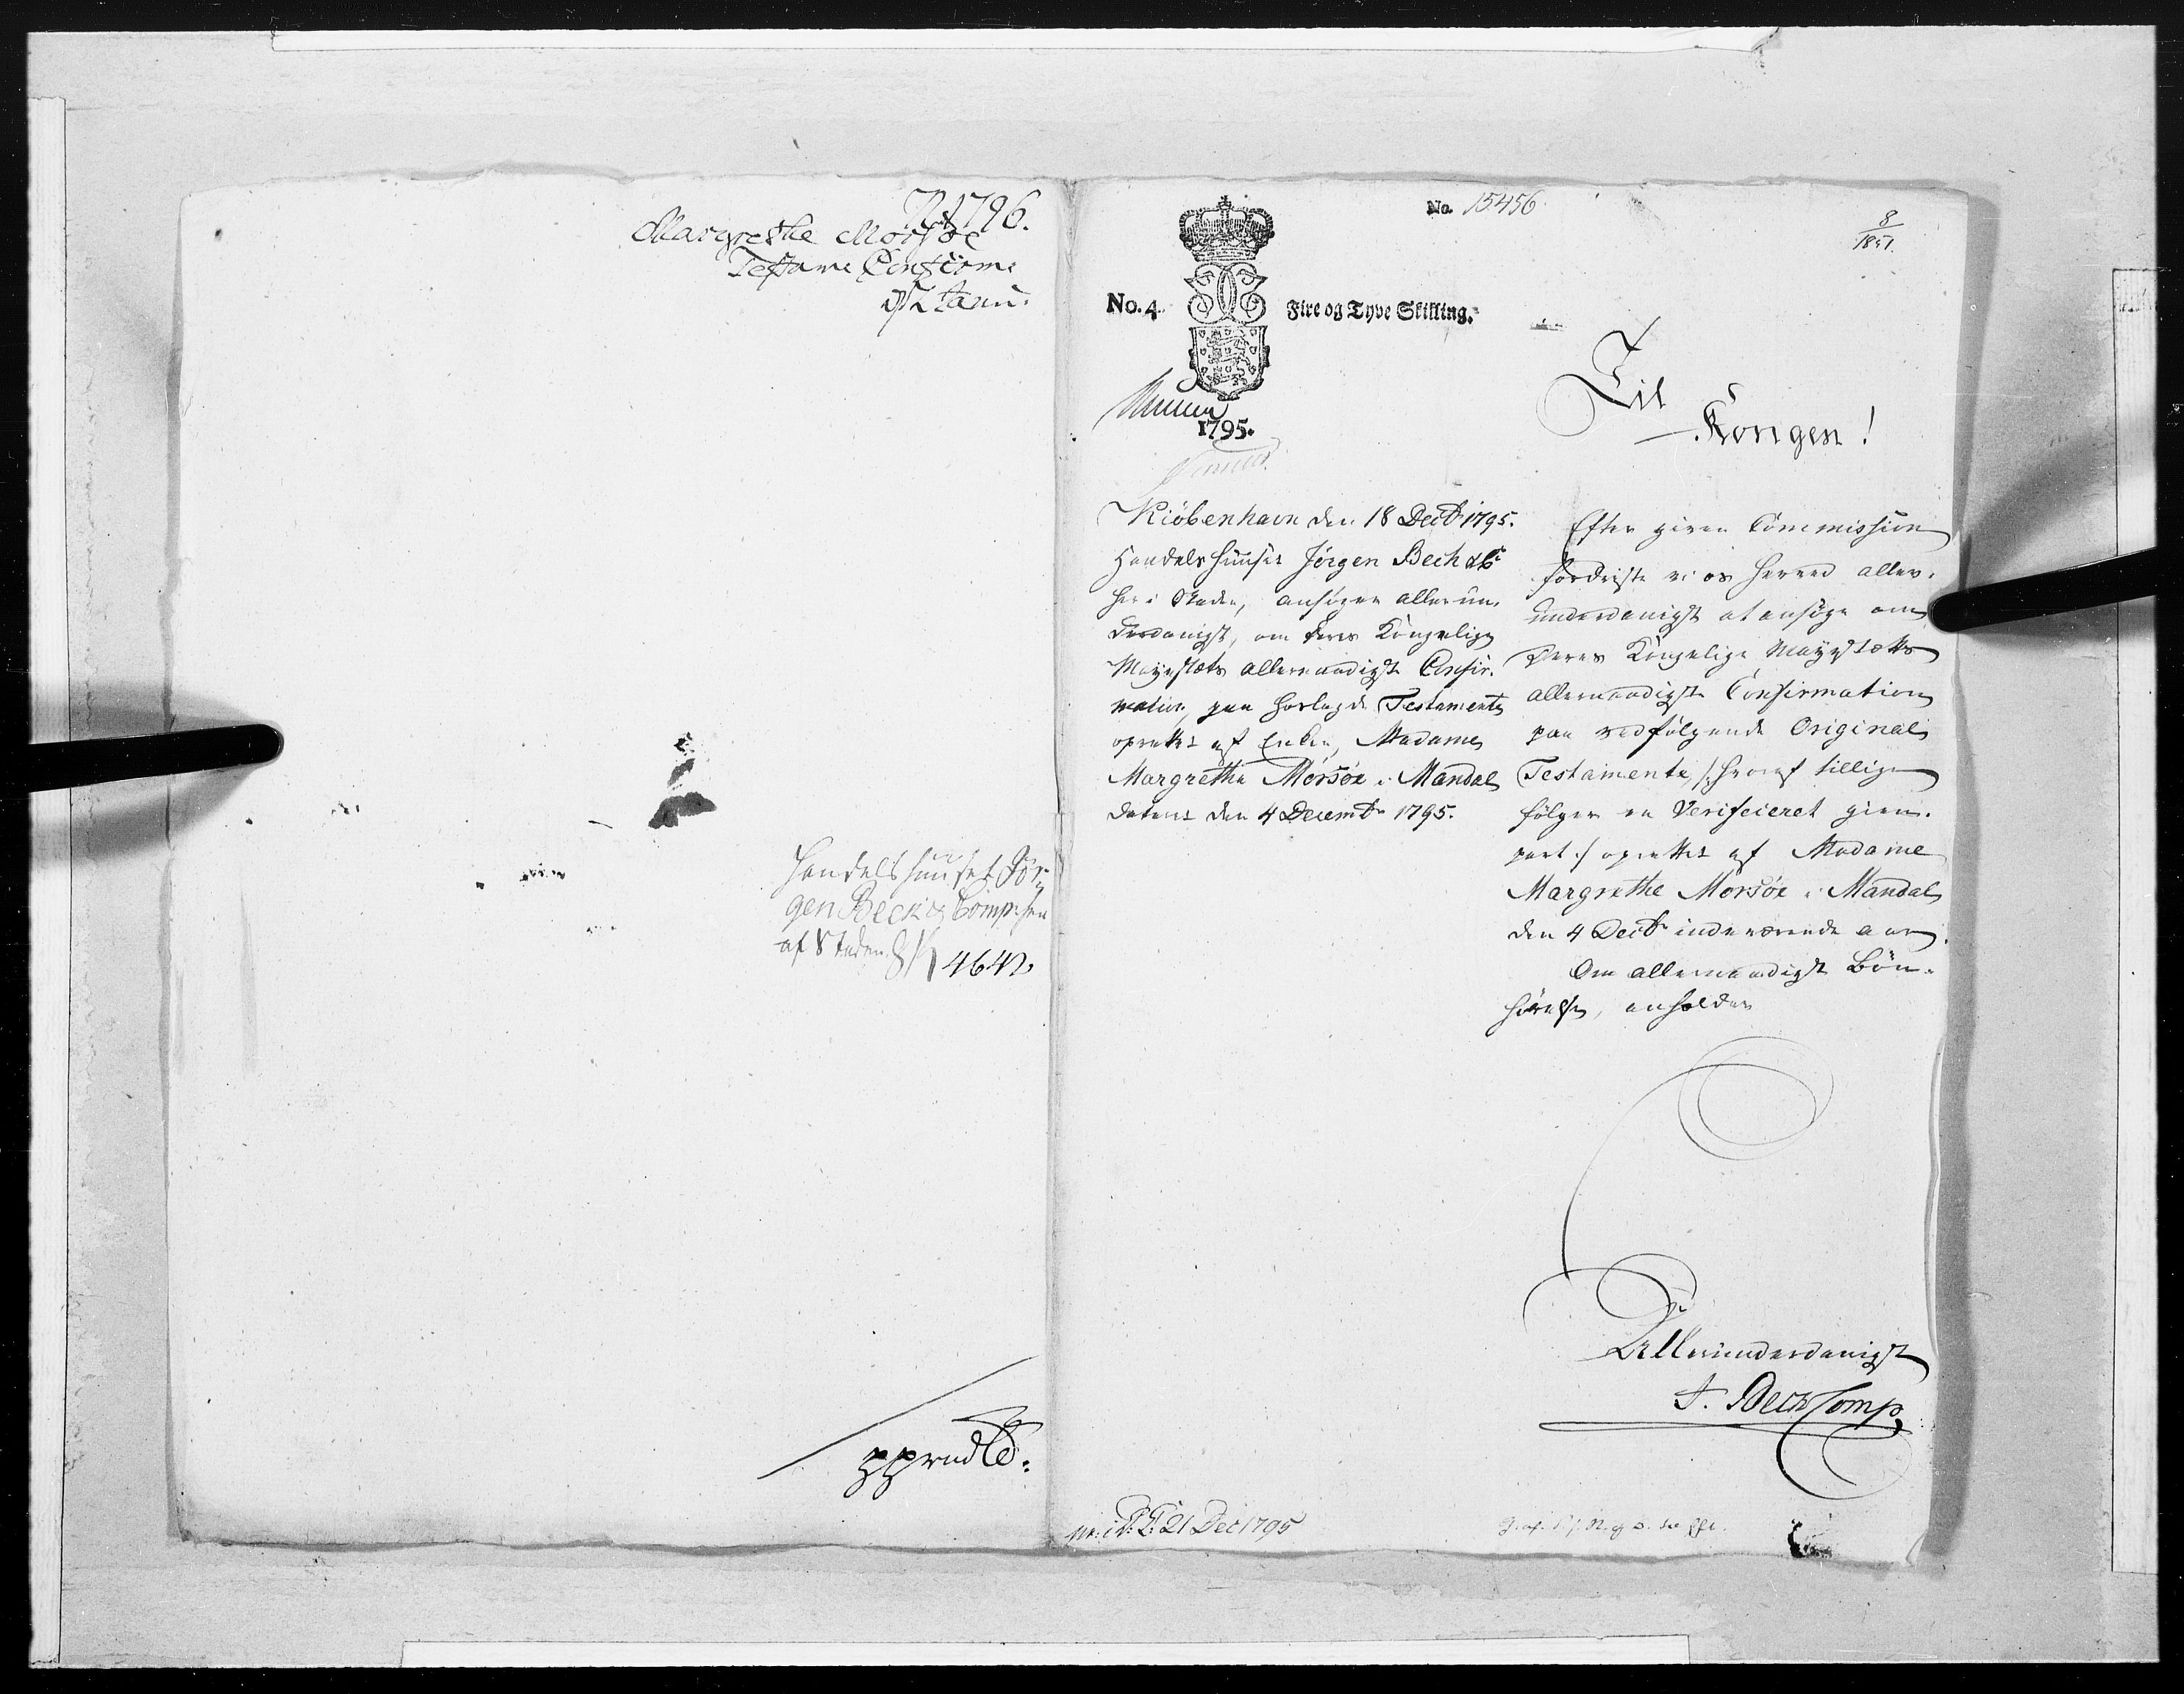 1796.
Margrethe Morsöe
Testam: Confirm:
Janu:
Handelshuuset Jör-
gen Beck & Comp: her
af Staden 4642.
No. 15456.
8
1851.
No. 4. Fire og Tyve Skilling.
1795.
Til
Kongen!
Kiöbenhavn den 18 Decbr 1795.
Handelshuuset Jörgen Bech & Co
her i Staden, ansöger allerun-
derdanigst, om Deres Kongelige
Mayestæts allernaadigste Confir-
mation, paa hoslagde Testamente
oprettet af Enken, Madame
Margrethe Morsöe i Mandal
dateret den 4 Decembr 1795.
Efter given Commission
fordriste vi os herved aller-
underdanigst at ansöge om
Deres Kongelige Mayestæts
allernaadigste Confirmation
paa vedfölgende Original
Testamente, /: hvoraf tillige
fölger en Verificeret gien-
part :/ oprettet af Madame
Margrethe Morsöe i Mandal
den 4 Decbr indeværende aar.
Om allernaadigst Bön-
hörelse, anholder
Allerunderdanigst
J. Bech & Comp
21 Dec 1795